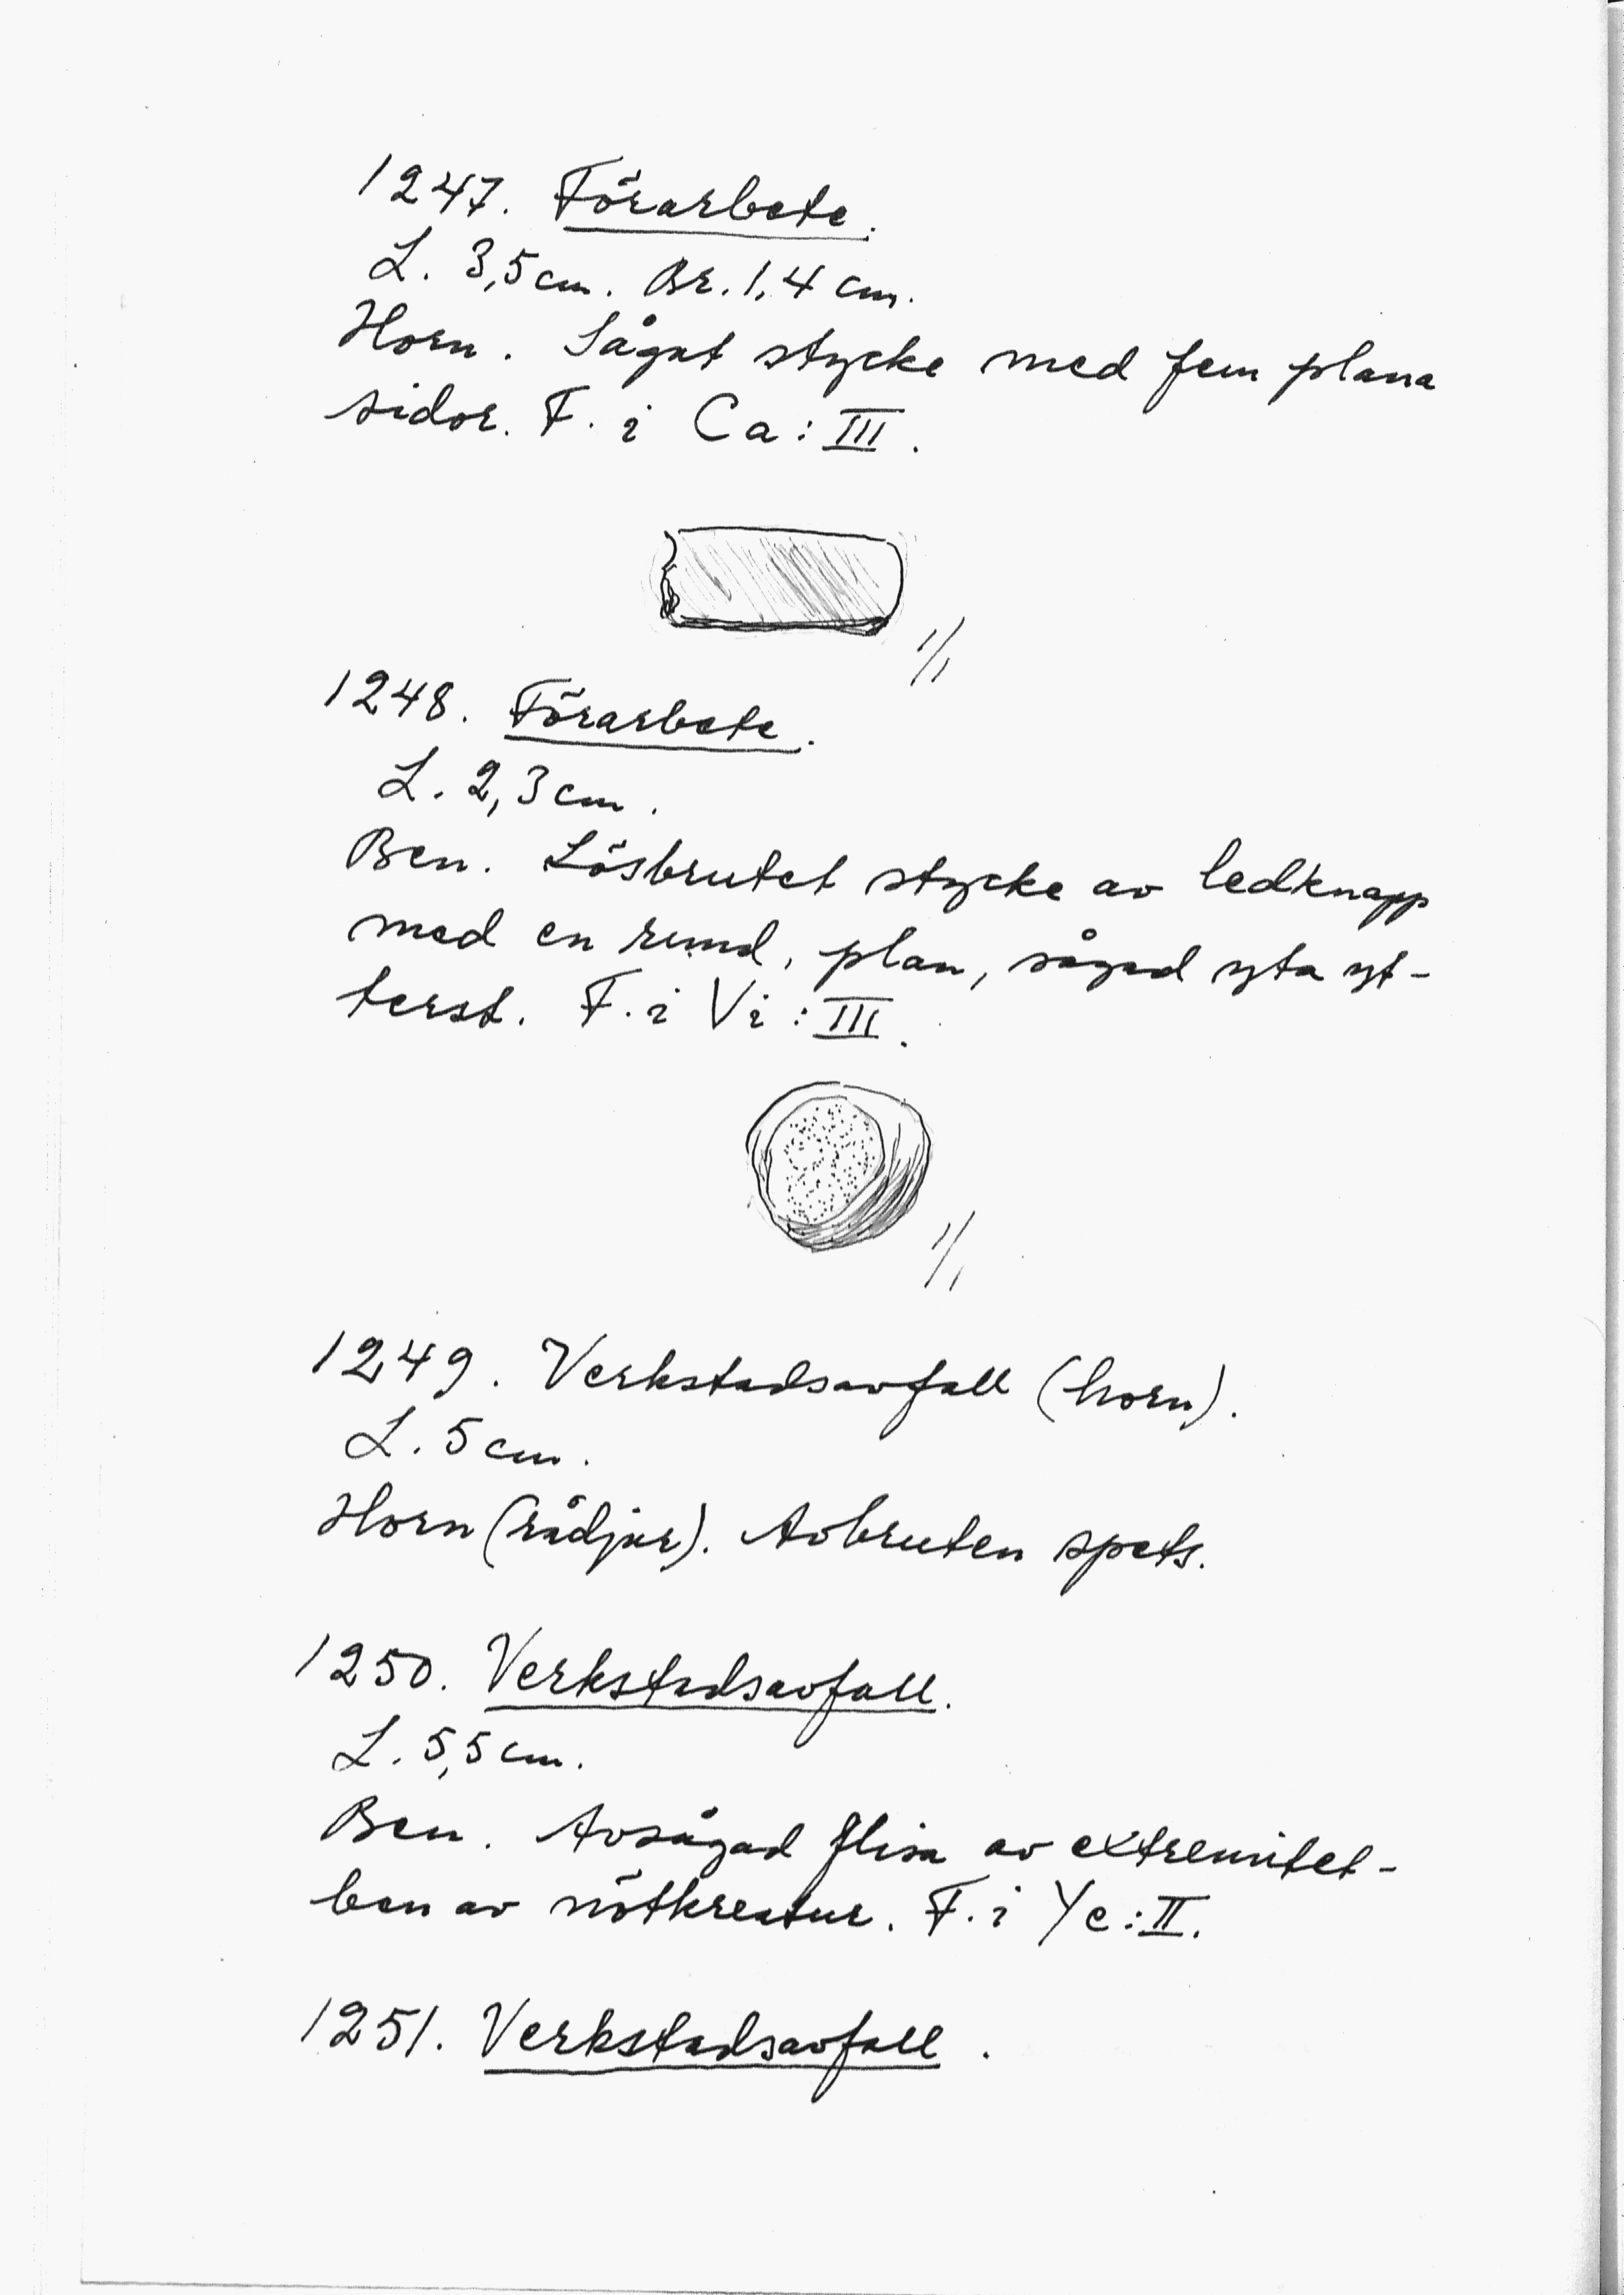 1247. Förarbete.
L. 3,5 cm. Br. 1,4 cm.
Horn. Sågat stycke med fem plana
sidor. F. i Ca: III.
1/1
1248. Förarbete.
L. 2,3 cm.
Ben. Lösbrutet stycke av ledknapp
med en rund, plan, sågad yta yt-
terst. F. i Vi: III.
1/1
1249. Verkstadsavfall (horn).
L. 5 cm.
Horn (rådjur). Avbruten spets.
1250. Verkstadsavfall.
L. 5,5 cm.
Ben. Avsågad flisa av extremitet-
ben av nötkreatur. F. i Yc: II.
1251. Verkstadsavfall.